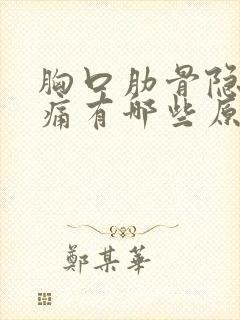 胸口肋骨隐
痛有哪些原
鄭某華